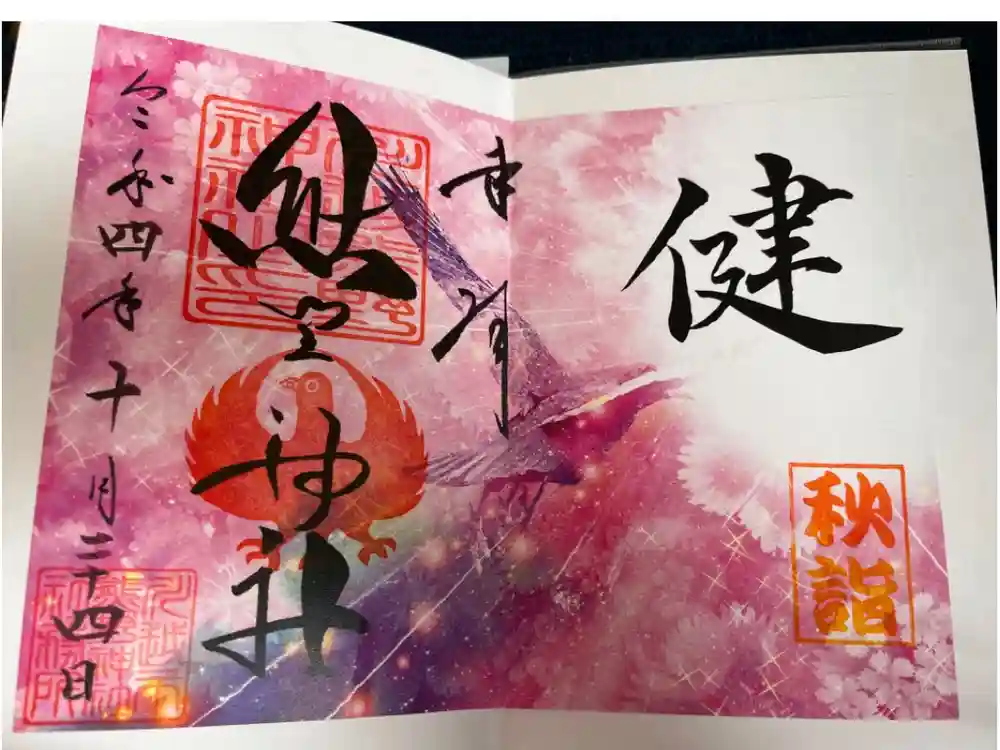 健
秋詣
奉拝
熊野神社
令和四年十月二十四日